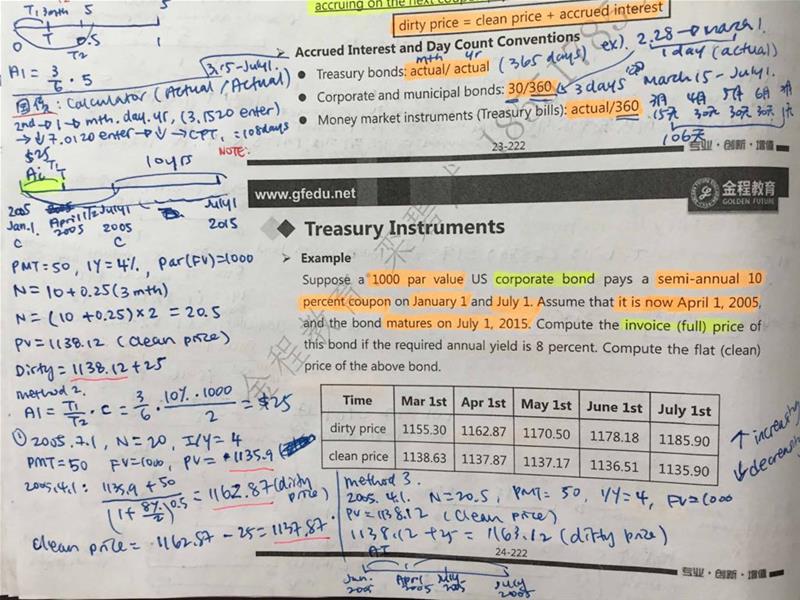 accruing on the next coupon
dirty price = clean price + accrued interest
T₁ 3mth 5 5
0 T 0.5 1
T₂
AI = 3/6 · 5
➤ Accrued Interest and Day Count Conventions
mth yr
● Treasury bonds: actual/ actual (365 days) ex). 2.28 → march 1.
1 day (actual)
● Corporate and municipal bonds: 30/360 → 3 days
● Money market instruments (Treasury bills): actual/360
March 15 - July 1.
3月 4月 5月 6月 7月
15天 30天 30天 30天 1天
106天
3.15 - July 1.
Calculator (Actual/Actual)
2nd → 1 → mth. day. yr, (3.1520 enter)
→ ↓ 7.0120 enter → ↓ → CPT, = 108 days
NOTE:
23-222
专业·创新·增值
$25
AI T₁ T 10 yrs
2005 2005 July 1 July 1
Jan. 1. April 1 2005 2015
C 2005 C
PMT = 50, IY = 4%, Par (FV) = 1000
N = 10 + 0.25 (3 mth)
N = (10 + 0.25) × 2 = 20.5
PV = 1138.12 (clean price)
Dirty = 1138.12 + 25
method 2.
AI = T₁/T₂ · C = 3/6 · 10% · 1000/2 = $25
① 2005.7.1, N = 20, I/Y = 4
PMT = 50 FV = 1000, PV = 1135.9
2005.4.1: 1135.9 + 50 / (1 + 8%/2)^0.5 = 1162.87 (dirty price)
clean price = 1162.87 - 25 = 1137.87
www.gfedu.net
金程教育
GOLDEN FUTURE
Treasury Instruments
➤ Example
Suppose a 1000 par value US corporate bond pays a semi-annual 10
percent coupon on January 1 and July 1. Assume that it is now April 1, 2005,
and the bond matures on July 1, 2015. Compute the invoice (full) price of
this bond if the required annual yield is 8 percent. Compute the flat (clean)
price of the above bond.
Time Mar 1st Apr 1st May 1st June 1st July 1st
dirty price 1155.30 1162.87 1170.50 1178.18 1185.90
clean price 1138.63 1137.87 1137.17 1136.51 1135.90
↑ increasing
↓ decreasing
method 3.
2005.4.1. N = 20.5, PMT = 50, I/Y = 4, FV = 1000
PV = 1138.12 (clean price)
1138.12 + 25 = 1163.12 (dirty price)
AI
Jan. April July July
2005 2005 2005 2005
24-222
专业·创新·增值